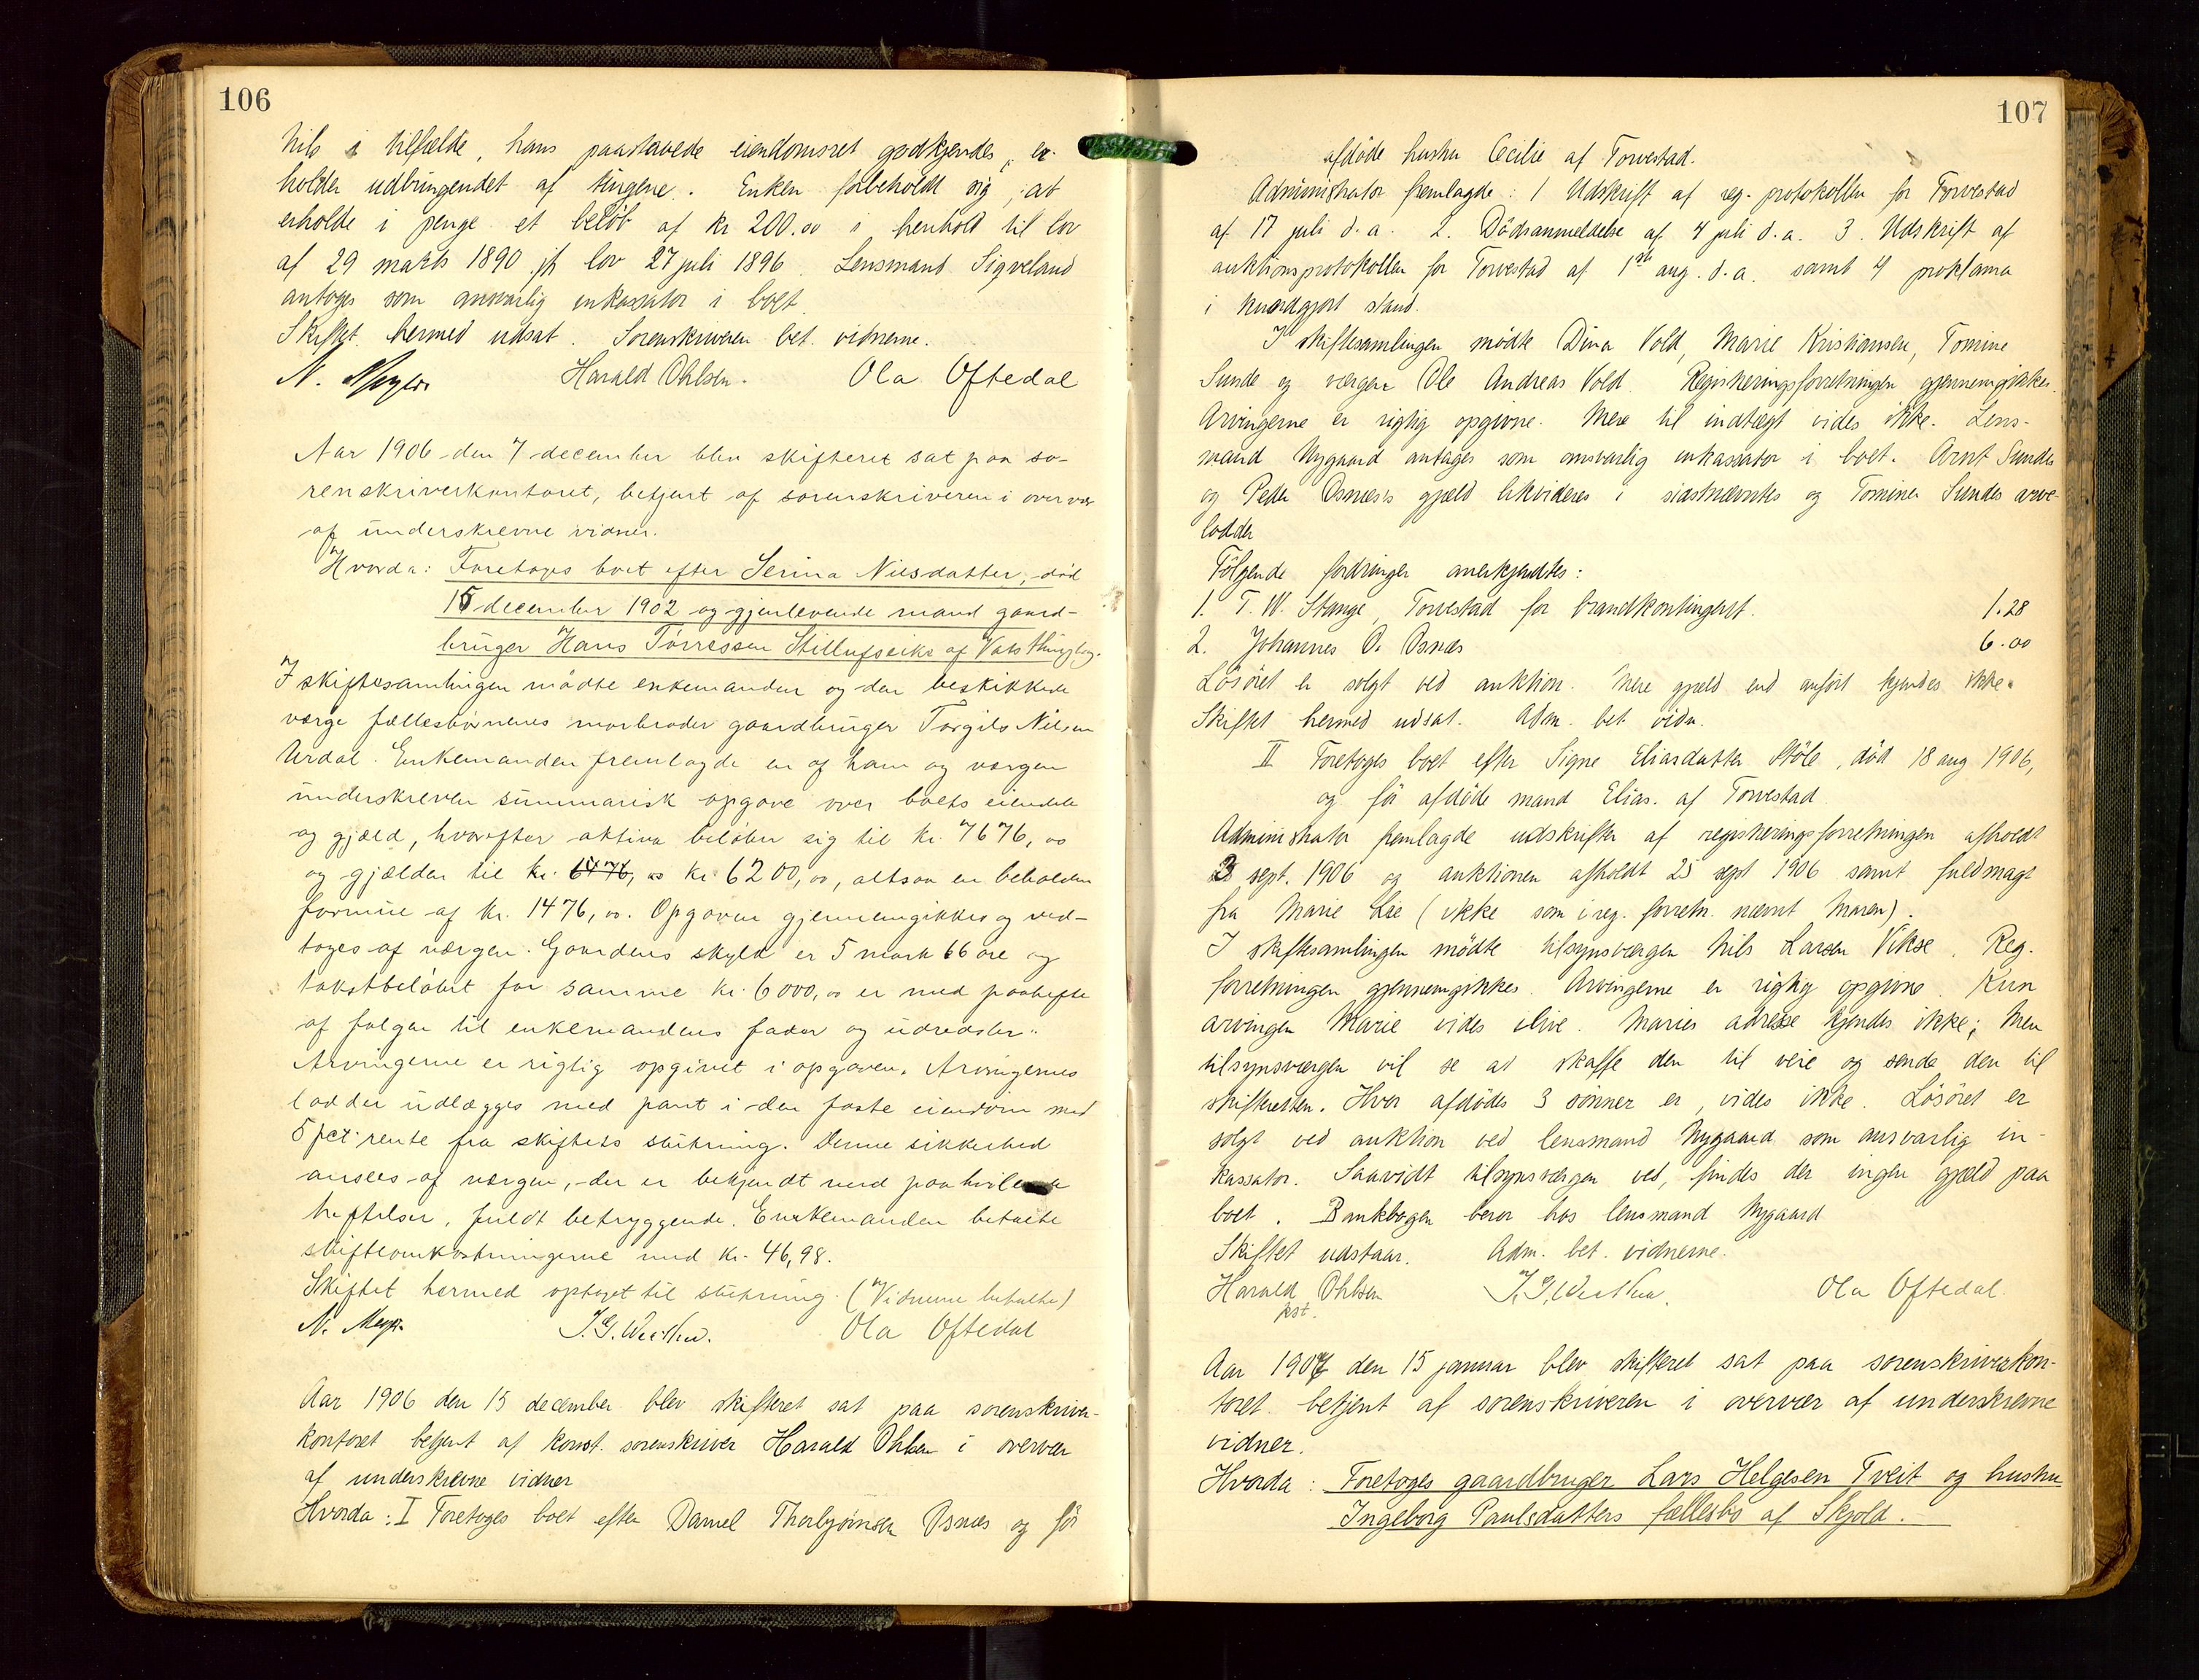 106
Nils i tilfælde, hans paastaaede eiendomsret godkjendes, er-
holder udbringendet af tingene. Enken forbeholdt sig, at
erholde i penge et beløb af kr 200.00 i henhold til lov
af 29 marts 1890 jfr lov 27 juli 1896. Lensmand Sigveland
antages som ansvarlig inkassator i boet.
Skiftet hermed udsat. Sorenskriveren bet. vidnerne.
N. Meyer Harald Ohlsen. Ola Oftedal
Aar 1906 den 7 december blev skifteret sat paa so-
renskriverkontoret, betjent af sorenskriveren i overvær
af underskrevne vidner.
Hvorda: Foretoges boet efter Serina Nilsdatter, død
15 december 1902 og gjenlevende mand gaard-
bruger Hans Tørressen Stillufseike af Vats thinglag.
I skiftesamlingen mødte enkemanden og den beskikkede
værge fællesbørnenes morbroder gaardbruger Torgils Nilsen
Urdal. Enkemanden fremlagde en af ham og værgen
underskreven summarisk opgave over boets eiendele
og gjæld, hvorefter aktiva beløber sig til kr. 7676,00
og gjælden til kr. 6476,00 kr. 6200,00, altsaa en beholden
formue af kr. 1476,00. Opgaven gjennemgikkes og ved-
toges af værgen. Gaardens skyld er 5 mark 66 øre og
takstbeløbet for samme kr. 6000,00 er med paahefte
af følgen til enkemandens fader og udredsler.
Arvingerne er rigtig opgivet i opgaven. Arvingernes
lodder udlægges med pant i den faste eiendom med
5 pct. rente fra skiftets slutning. Denne sikkerhed
ansees af værgen, der er bekjendt med paahvilende
heftelser, fuldt betryggende. Enkemanden betalte
skifteomkostningerne med kr. 46,98.
Skiftet hermed optaget til slutning. (Vidnerne betalte)
N. Meyer Ola Oftedal
Aar 1906 den 15 december blev skifteret sat paa sorenskriver-
kontoret betjent af konst. sorenskriver Harald Ohlsen i overvær
af underskrevne vidner
Hvorda: I Foretoges boet efter Daniel Thorbjørnsen Osnes og før
107
afdøde hustru Cecilie af Torvestad.
Administrator fremlagde: 1 Udskrift af reg. protokollen for Torvestad
af 17 juli d.a. 2. Dødsanmeldelse af 4 juli d.a. 3. Udskrift af
auktionsprotokollen for Torvestad af 1ste aug. d.a. samt 4 proklama
i kundgjort stand.
I skiftesamlingen mødte Dina Vold, Marie Kristiansen, Tomine
Sunde og værgen Ole Andreas Vold. Registreringsforretningen gjennemgikkes.
Arvingerne er rigtig opgivne. Mere til indtægt vides ikke. Lens-
mand Nygaard antages som ansvarlig inkassator i boet. Arnt Sundes
og Peder Osnæs's gjæld likvideres i sidstnævntes og Tomine Sundes arve-
lodder
Følgende fordringer anerkjendtes:
1. T. W. Stange, Torvestad for brandkontingent. 1.28
2. Johannes O. Osnæs 6.00
Løsøret er solgt ved auktion. Mere gjæld end anført kjendes ikke.
Skiftet hermed udsat. Adm. bet. vidn.
II Foretoges boet efter Signe Eliasdatter Støle, død 18 aug 1906,
og før afdøde mand Elias. af Torvestad
Administrator fremlagde udskrifter af registreringsforretningen afholdt
3 sept. 1906 og auktionen afholdt 25 sept 1906 samt fuldmagt
fra Marie Lie (ikke som i reg. forretn. nævnt Maren).
I skiftesamlingen mødte tilsynsværgen Nils Larsen Vikse. Reg.
forretningen gjennemgikkes. Arvingerne er rigtig opgivne. Kun
arvingen Marie vides ilive. Maries adresse kjendes ikke; Men
tilsynsværgen vil se at skaffe den til veie og sende den til
skifteretten. Hvor afdødes 3 sønner er, vides ikke. Løsøret er
solgt ved auktion ved lensmand Nygaard som ansvarlig in-
kassator. Saavidt tilsynsværgen ved, findes der ingen gjæld paa
boet. Bankbogen beror hos lensmand Nygaard
Skiftet udstaar. Adm. bet. vidnerne.
Harald Ohlsen Ola Oftedal
kst.
Aar 1907 den 15 januar blev skifteret sat paa sorenskriverkon-
toret betjent af sorenskriveren i overvær af underskrevne
vidner.
Hvorda: Foretoges gaardbruger Lars Helgesen Tveit og hustru
Ingeborg Paulsdatters fællesbo af Skjold.